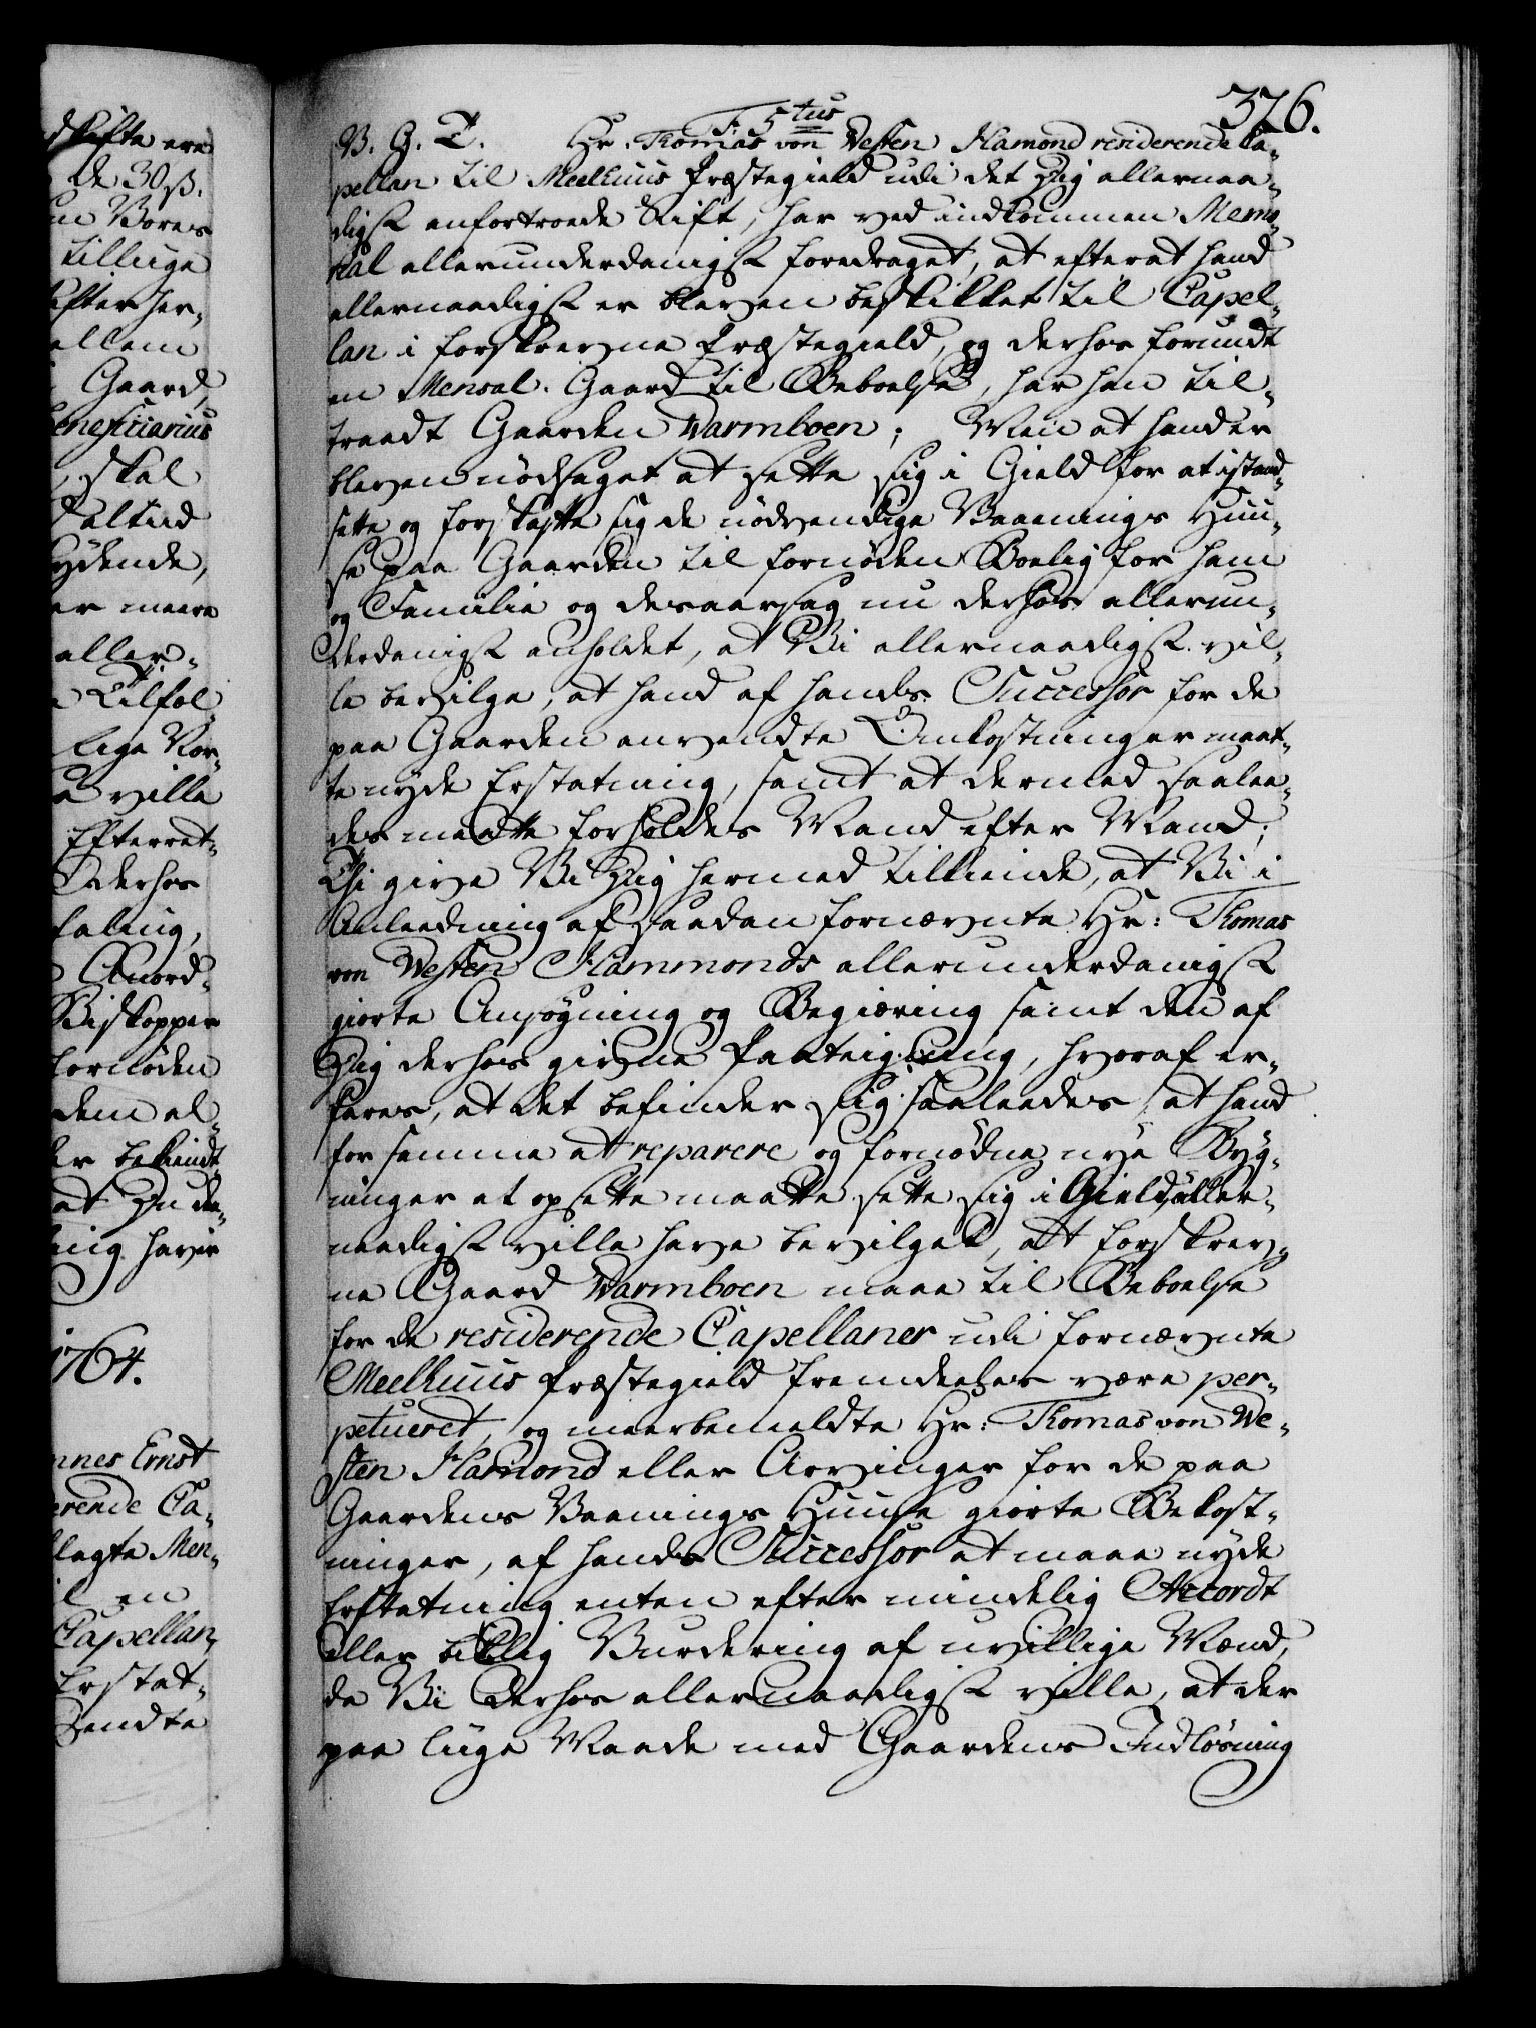 376.
F. 5tus
V. G. T. Hr. Thomas von Westen Hamond residerende Ca-
pellan til Meelhuus Præstegield udi det dig allernaa-
digst anfortroede Stift, har ved indkommen Memo-
rial allerunderdanigst foredraget, at efterat hand
allernaadigst er bleven beskikket til Capel-
lan i forskrevne Præstegield, og derhos forundt
en Mensal-Gaard til Beboelse, har han til-
traadt Gaarden Varmboen; Men at hand er
bleven nødsaget at sette sig i Gield for at istand-
sette og forskaffe sig de nødvendige Vaanings Huu-
se paa Gaarden til fornøden Boelig for ham
og Familie og desaarsag nu derhos allerun-
derdanigst anholdet, at Vi allernaadigst vil-
le bevilge, at hand af hands Successor for de
paa Gaarden anvendte Omkostninger maat-
te nyde Erstatning, samt at dermed saalee-
des maatte forholdes Mand efter Mand;
Thi give Vi dig hermed tilkiende, at Vi i
Anleedning af saadan fornævnte Hr: Thomas
von Westen Hammonds allerunderdanigst
giorte Ansøgning og Begiæring samt den af
dig derhos givne Paateigning, hvoraf er-
fares, at det befinder sig saaleedes, at hand
for samme at reparere og fornødne nye Byg-
ninger at opsette maatte sette sig i Gield, aller-
naadigst ville have bevilget, at forskrev-
ne Gaard Varmboen maae til Beboelse
for de residerende Capellaner udi fornævnte
Meelhuus Præstegield fremdeeles være per-
petueret, og meerbemeldte Hr: Thomas von We-
sten Hamond eller Arvinger for de paa
Gaardens Vaanings Huuse giorte Bekost-
ninger, af hands Successor at maae nyde
Erstatning enten efter mindelig Accordt
eller billig Vurdering af uvillige Mænd,
da Vi derhos allernaadigst ville, at der
paa liige Maade med Gaardens Indløsning
dskifte ere
de 30 ß.
Vores
tilliige
efter her-
ellem
Gaard,
eneficiarius
skal
altiid
ydende,
er meere
aller-
Tilføl-
lige Vor-
ville
Efterret-
derhos
faling,
Anord-
Biskopper
fornøden
dem al-
er bekiendt
at Du
ing haver
1764.
nnes Ernst
erende Ca-
lagte Men-
en
Capellan,
Erstat-
vendte